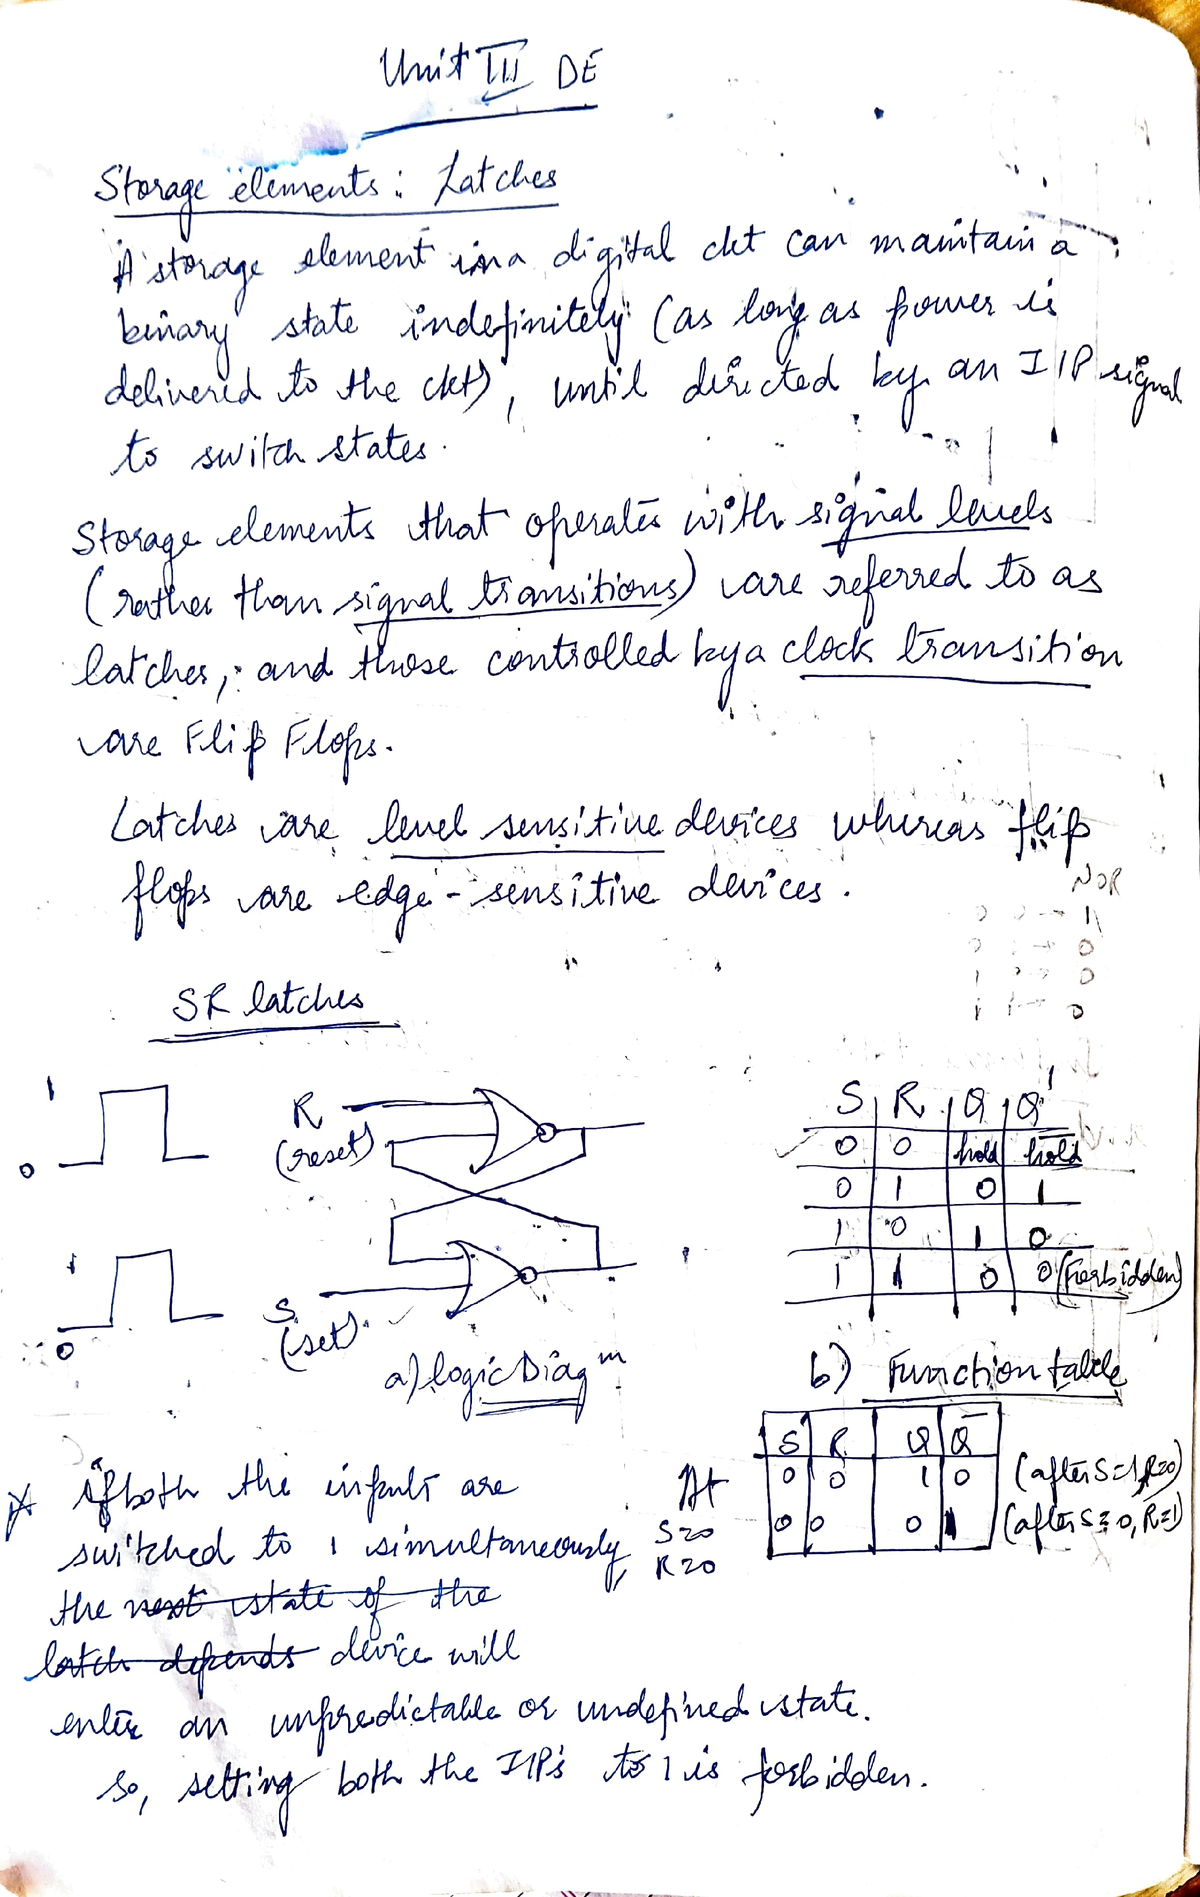 Unit III DE
Storage elements: Latches
A storage element in a digital ckt can maintain a
binary state indefinitely (as long as power is
delivered to the ckt), until directed by an I/P signal
to switch states.
Storage elements that operates with signal levels
(rather than signal transitions) are referred to as
latches, and those controlled by a clock transition
are Flip Flops.
Latches are level sensitive devices whereas flip
flops are edge-sensitive devices.
NOR
SR latches
1
0
R
(reset)
1
0
S
(set)
a) logic Diagm
S R Q Q'
0 0 hold hold
0 1 0 1
1 0 1 0
1 1 0 0 (Forbidden)
b) Function table
At
S=0
R=0
S R Q Q̅
0 0 1 0 (after S=1, R=0)
0 0 0 1 (after S=0, R=1)
If both the inputs are
switched to 1 simultaneously,
the next state of the
latch depends device will
enter an unpredictable or undefined state.
So, setting both the I/P's to 1 is forbidden.